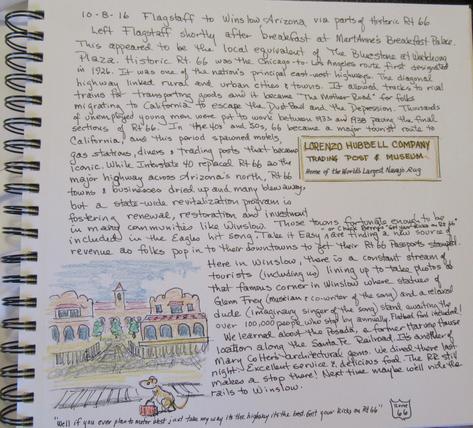 10-8-16 Flagstaff to Winslow, Arizona via parts of historic Rt 66
Left Flagstaff shortly after breakfast at MartAnne's Breakfast Palace.
This appeared to be the local equivalent of The Bluestone at
Plaza. Historic Rt. 66 was the Chicago-to-Los Angeles route first designated
in 1926. It was one of the nation's principal east-west highways. The diagonal
highway linked rural and urban cities & towns. It allowed trucks to rival
trains for transporting goods and it became "The Mother Road" for folks
migrating to California to escape the Dust Bowl and the Depression. Thousands
of unemployed young men were put to work between 1933 and 1938 paving the final
sections of Rt 66. In the 40s and 50s, 66 became a major tourist route to
California, and this period spawned motels,
gas stations, diners & trading posts that became
iconic. While Interstate 40 replaced Rt 66 as the
major highway across Arizona's north, Rt 66
towns & businesses dried up and many blew away,
but a state-wide revitalization program is
fostering renewal, restoration and investment
in many communities like Winslow. Those towns fortunate enough to be
included in the Eagles hit song, Take it Easy, are finding a new source of
or Chuck Berry's "Get your kicks on Rt 66"
revenue as folks pop in to their downtowns to get their Rt 66 Passports stamped.
LORENZO HUBBELL COMPANY
TRADING POST & MUSEUM
Home of the World's Largest Navajo Rug
Here in Winslow, there is a constant stream of
tourists (including us) lining up to take photos at
that famous corner in Winslow where statues of
Glenn Frey (musician & co-writer of the song) and a relaxed
dude (imaginary singer of the song) stand awaiting the
over 100,000 people who stop by annually. Flatbed Ford included!
We learned about the Posada, a former Harvey House
location along the Santa Fe Railroad. It's another of
Mary Colter's architectural gems. We dined there last
night! Excellent service & delicious food. The RR still
makes a stop there! Next time maybe we'll ride the
rails to Winslow.
66
"Well if you ever plan to motor west, just take my way its the highway its the best. Get your kicks on Rt 66"